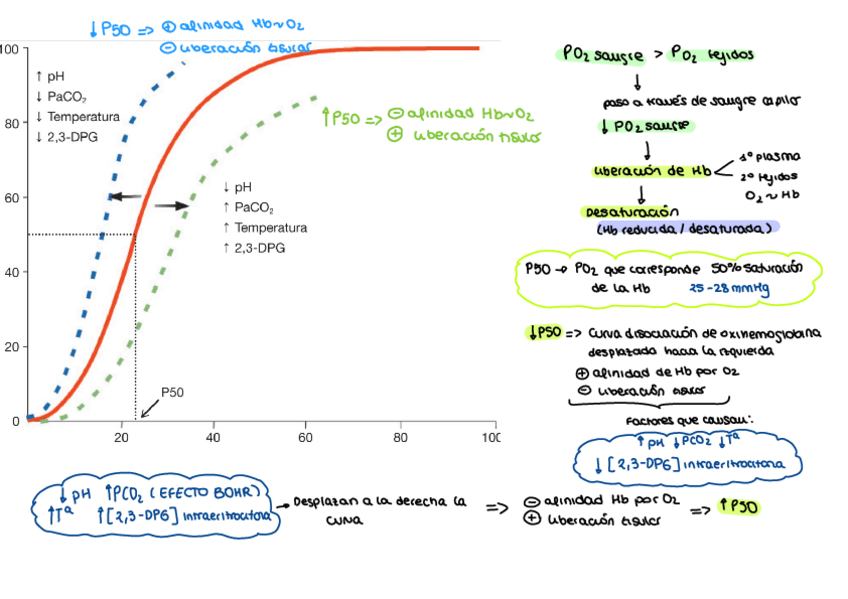 ↓P50 => ⊕ afinidad Hb~O2
⊖ liberación tisular
100
80
60
40
20
0
20
40
60
80
100
↑ pH
↓ PaCO2
↓ Temperatura
↓ 2,3-DPG
↑P50 => ⊖ afinidad Hb~O2
⊕ liberación tisular
↓ pH
↑ PaCO2
↑ Temperatura
↑ 2,3-DPG
P50
PO2 sangre > PO2 tejidos
↓
paso a través de sangre capilar
↓ PO2 sangre
↓
liberación de Hb
1º plasma
2º tejidos
O2 ~ Hb
↓
Desaturación
(Hb reducida / desaturada)
P50 → PO2 que corresponde 50% saturación
de la Hb 25-28 mmHg
↓P50 => Curva disociación de oxihemoglobina
desplazada hacia la izquierda
⊕ afinidad de Hb por O2
⊖ liberación tisular
Factores que causan:
↑ pH ↓PCO2 ↓Tª
↓ [2,3-DPG] intraeritrocitaria
↓ pH ↑PCO2 (EFECTO BOHR)
↑Tª ↑[2,3-DPG] intraeritrocitaria
→ Desplazan a la derecha la
curva
=> ⊖ afinidad Hb por O2
⊕ liberación tisular
=> ↑P50